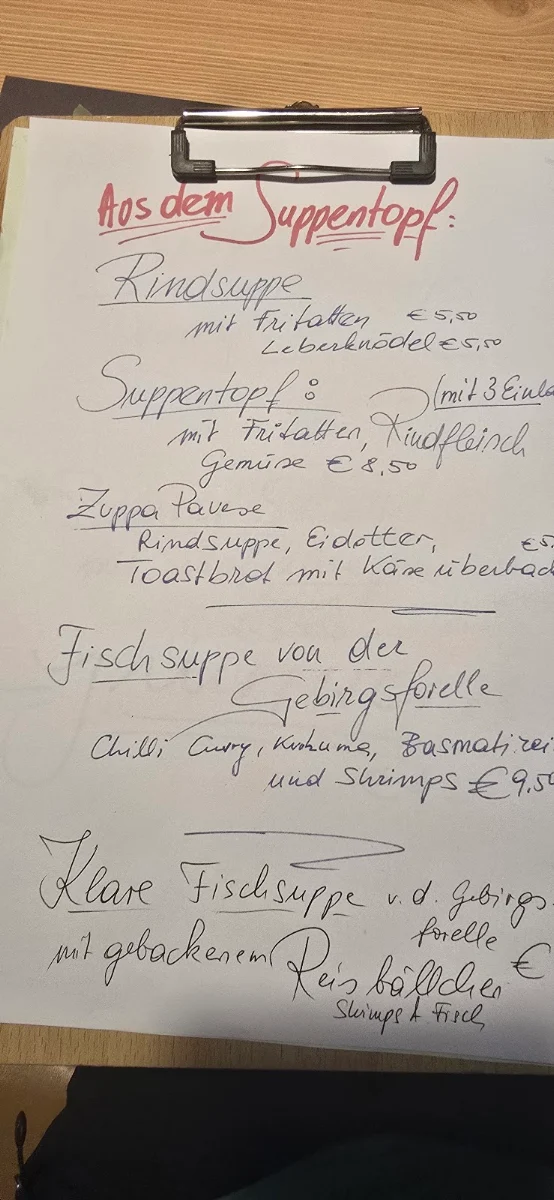 Aus dem Suppentopf:
Rindsuppe
mit Fritatten € 5,50
Leberknödel € 5,50
Suppentopf: (mit 3 Einla
mit Fritatten, Rindfleisch
Gemüse € 8,50
Zuppa Pavese
Rindsuppe, Eidotter, € 5,
Toastbrot mit Käse überbac
Fischsuppe von der
Gebirgsforelle
Chilli Curry, Kurkuma, Basmatirei
und Shrimps € 9,50
Klare Fischsuppe v. d. Gebirgs-
forelle
mit gebackenem Reisbällchen €
Shrimps + Fisch